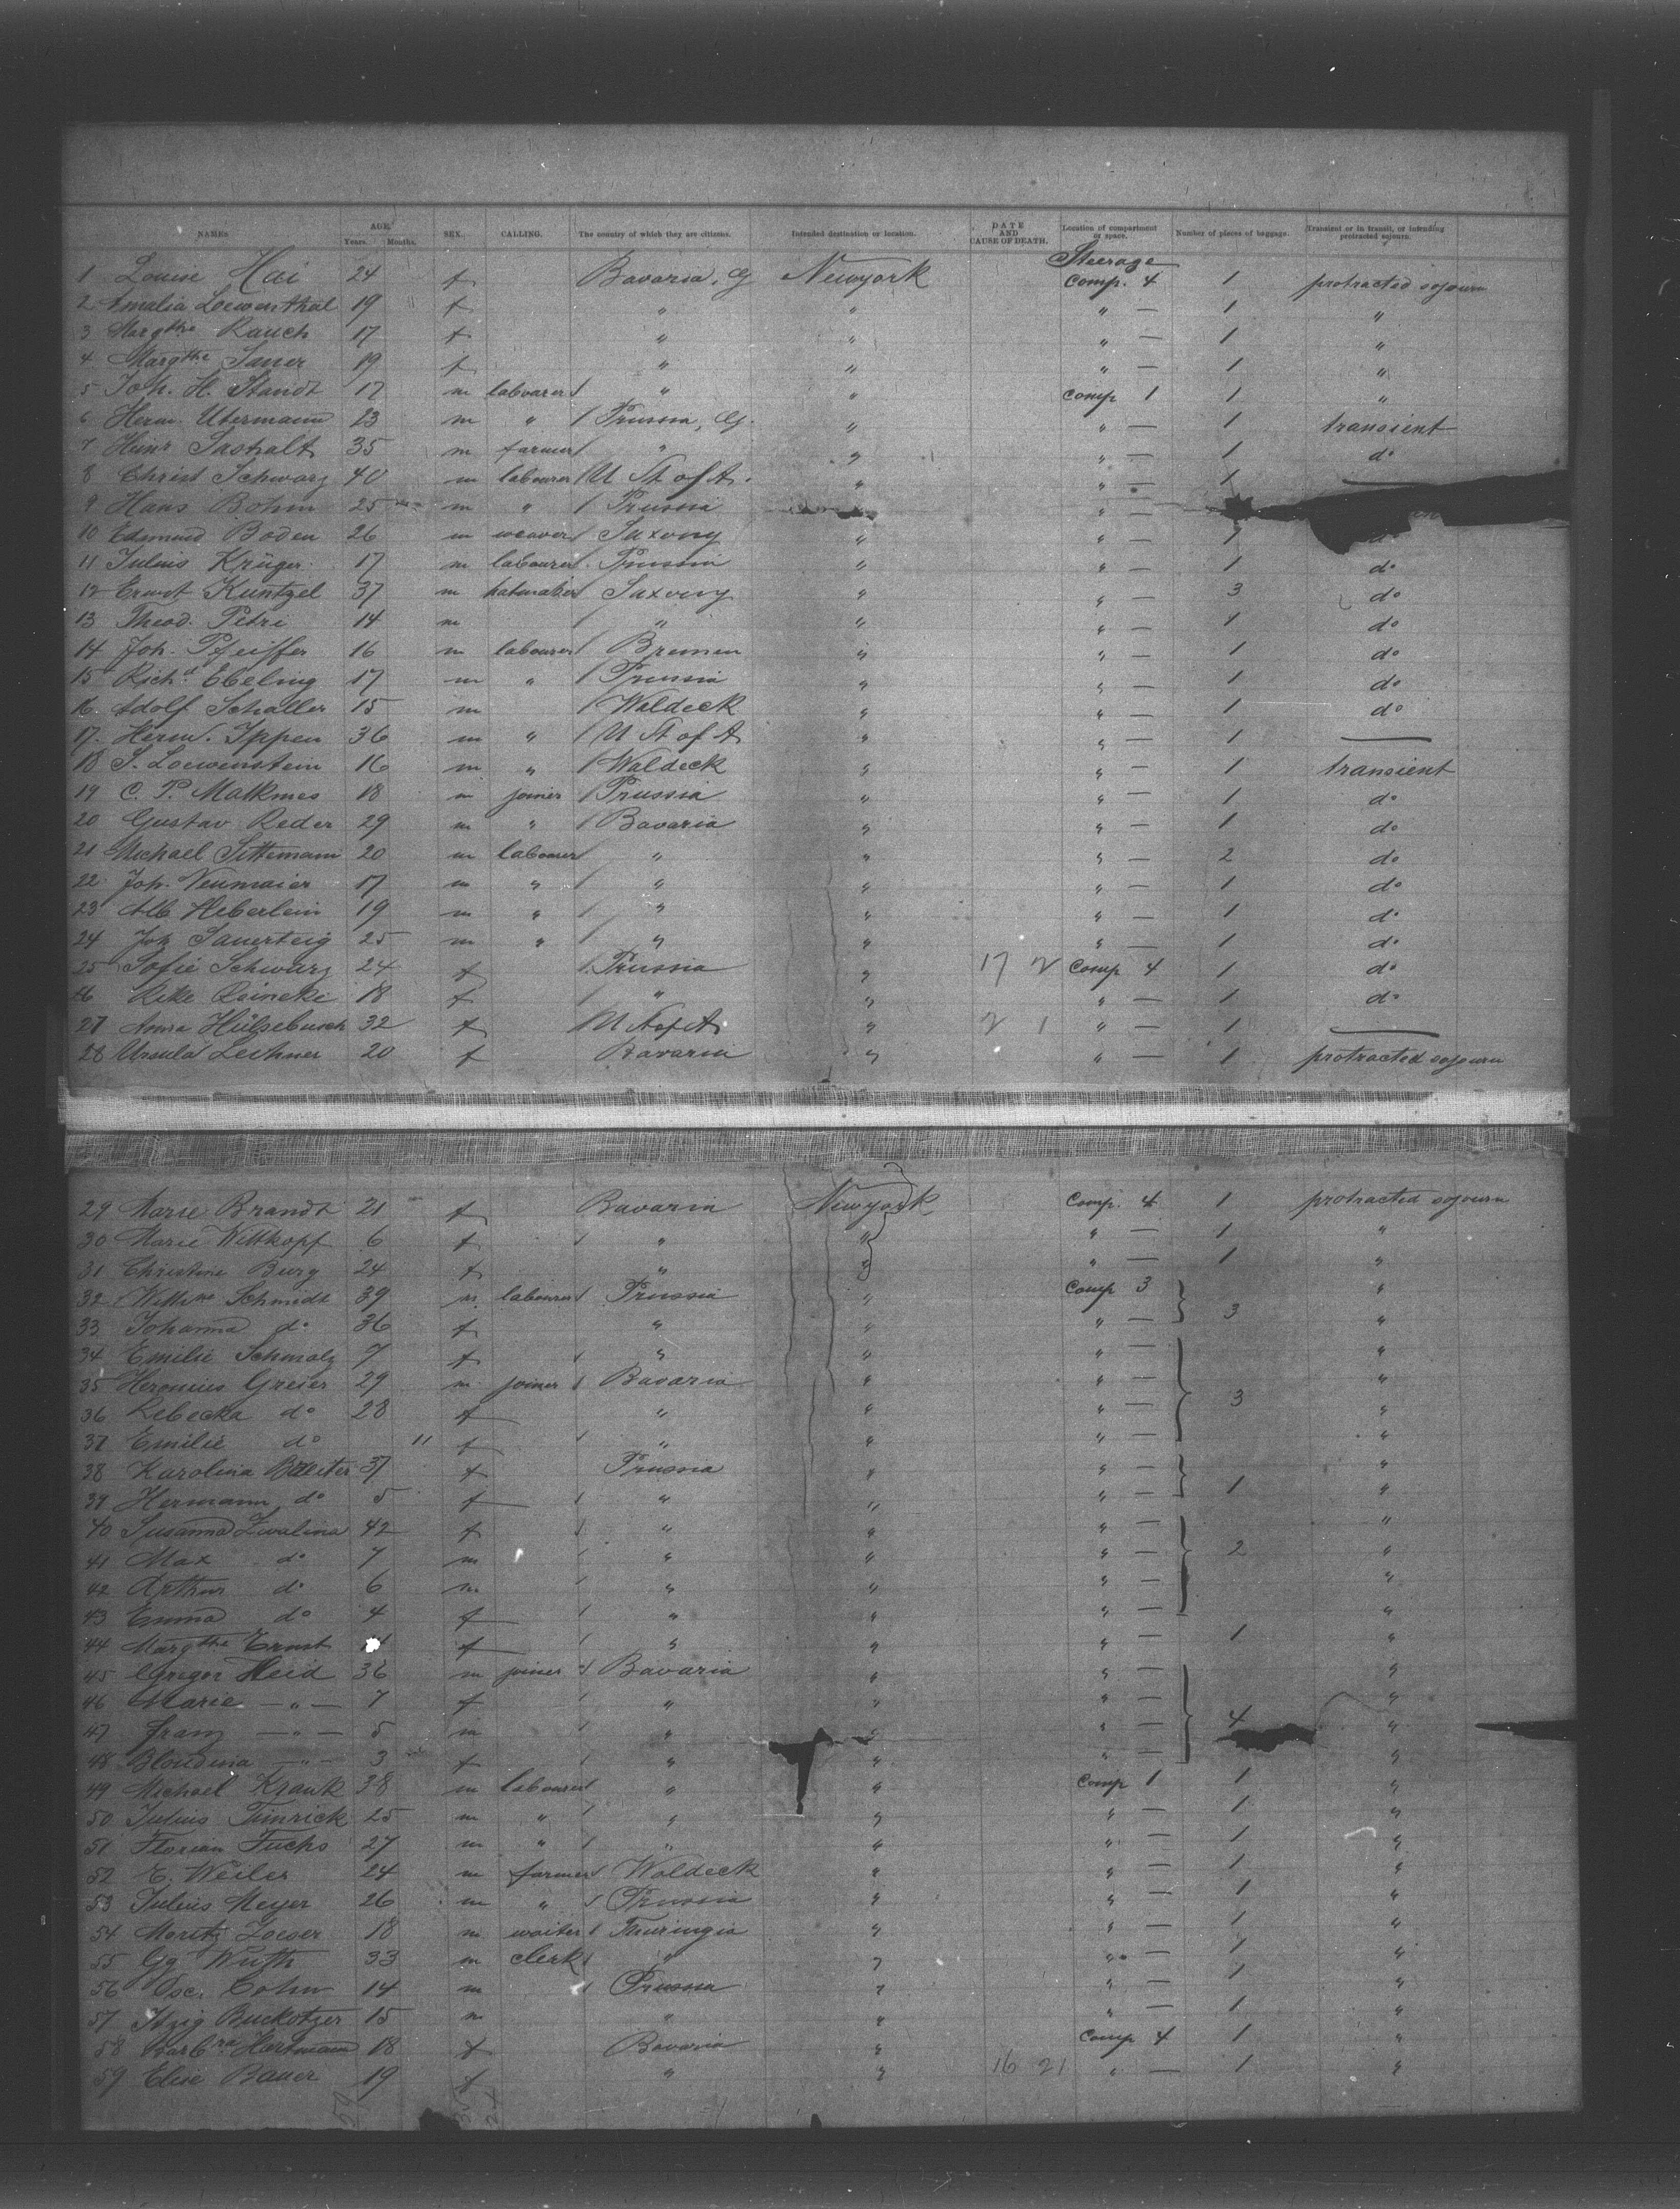 NAMES AGE. Years. Months. SEX. CALLING. The country of which they are citizens. Intended destination or location. DATE AND CAUSE OF DEATH. Location of compartment or space. Number of pieces of baggage. Transient or in transit, or intending protracted sojourn.
Steerage
1 Louise Hai 24 f Bavaria, Gy Newyork Comp. 4 1 protracted sojourn
2 Amalia Loewenthal 19 f " " " — 1 "
3 Margthe Rauch 17 f " " " — 1 "
4 Margthe 19 f " " " — 1 "
5 Joh. H. Standt 17 m labourer / " " Comp 1 1 "
6 Herm. Utermann 23 m " / Prussia, Gy. " " — 1 transient
7 Heinr 35 m farmer / " " " — 1 do
8 Christ Schwarz 40 m labourer / U St of A. " " — 1 —
9 Hans Bohm 25 m " / Prussia " —
10 Edmund Boden 26 m weaver / Saxony " " — 1 do
11 Julius Krüger 17 m labourer Prussia " " — 1 do
12 Ernst Kuntzel 37 m hatmaker / Saxony " " — 3 do
13 Theod. Petri 14 m / " " " — 1 do
14 Joh. Pfeiffer 16 m labourer / Bremen " " — 1 do
15 Richd Ebeling 17 m " / Prussia " " — 1 do
16 Adolf Schaller 15 m / Waldeck " " — 1 do
17 Herm. Ippen 36 m " / U St of A " " — 1 —
18 S. Loewenstein 16 m " / Waldeck " " — 1 transient
19 C. P. Malkmes 18 m joiner / Prussia " " — 1 do
20 Gustav Reder 29 m " / Bavaria " " — 1 do
21 Michael 20 m labourer / " " " — 2 do
22 Joh. Neumaier 17 m " / " " " — 1 do
23 Alb Heberlein 19 m " / " " " — 1 do
24 Joh Sauerteig 25 m " / " " " — 1 do
25 Sofie Schwarz 24 f / Prussia " 17 2 Comp 4 1 do
26 Rike Reineke 18 f / " " " — 1 do
27 Anna Hülsebusch 32 f U St of A " 2 1 " — 1 —
28 Ursula Lechner 20 f Bavaria " " — 1 protracted sojourn
29 Marie Brandt 21 f Bavaria Newyork Comp. 4 1 protracted sojourn
30 Marie Wittkopf 6 f / " " " — 1 "
31 Christine Burg 24 f " " " — 1 "
32 Schmidt 39 m labourer / Prussia " Comp 3 3 "
33 Johanna do 36 f " " " — "
34 Emilie Schmalz 7 f / " " " — "
35 Greser 29 m joiner / Bavaria " " — 3 "
36 Rebecka do 28 f " " " — "
37 Emilie do 11 f / " " " — "
38 Karolina 37 f Prussia " " — 1 "
39 Hermann do 5 f / " " " — "
40 Susanna Zwalina 42 f / " " " — 2 "
41 Max do 7 m / " " " — "
42 Arthur do 6 m / " " " — "
43 Emma do 4 f / " " " — "
44 Margthe Ernst f / " " " — 1 "
45 Gregor Heid 36 m joiner / Bavaria " " — 4 "
46 Marie — " — 7 f / " " " — "
47 Franz — " — 5 m / " " " — "
48 Blondina — " — 3 f / " " " — "
49 Michael Krank 38 m labourer / " " Comp 1 1 "
50 Julius 25 m " / " " " — 1 "
51 Florian Fuchs 27 m " / " " " — 1 "
52 E. Weiler 24 m farmer / Waldeck " " — 1 "
53 Julius Meyer 26 m " / Prussia " " — 1 "
54 Moritz Loeser 18 m waiter / Thuringia " " — 1 "
55 Gg Wuth 33 m clerk / " " " — 1 "
56 Osc. Cohn 14 m / Prussia " " — 1 "
57 Itzig 15 m " " " — 1 "
58 Barbra Hartmann 18 f Bavaria " Comp 4 1 "
59 Elise Bauer 19 f " " 16 21 " — 1 "
59